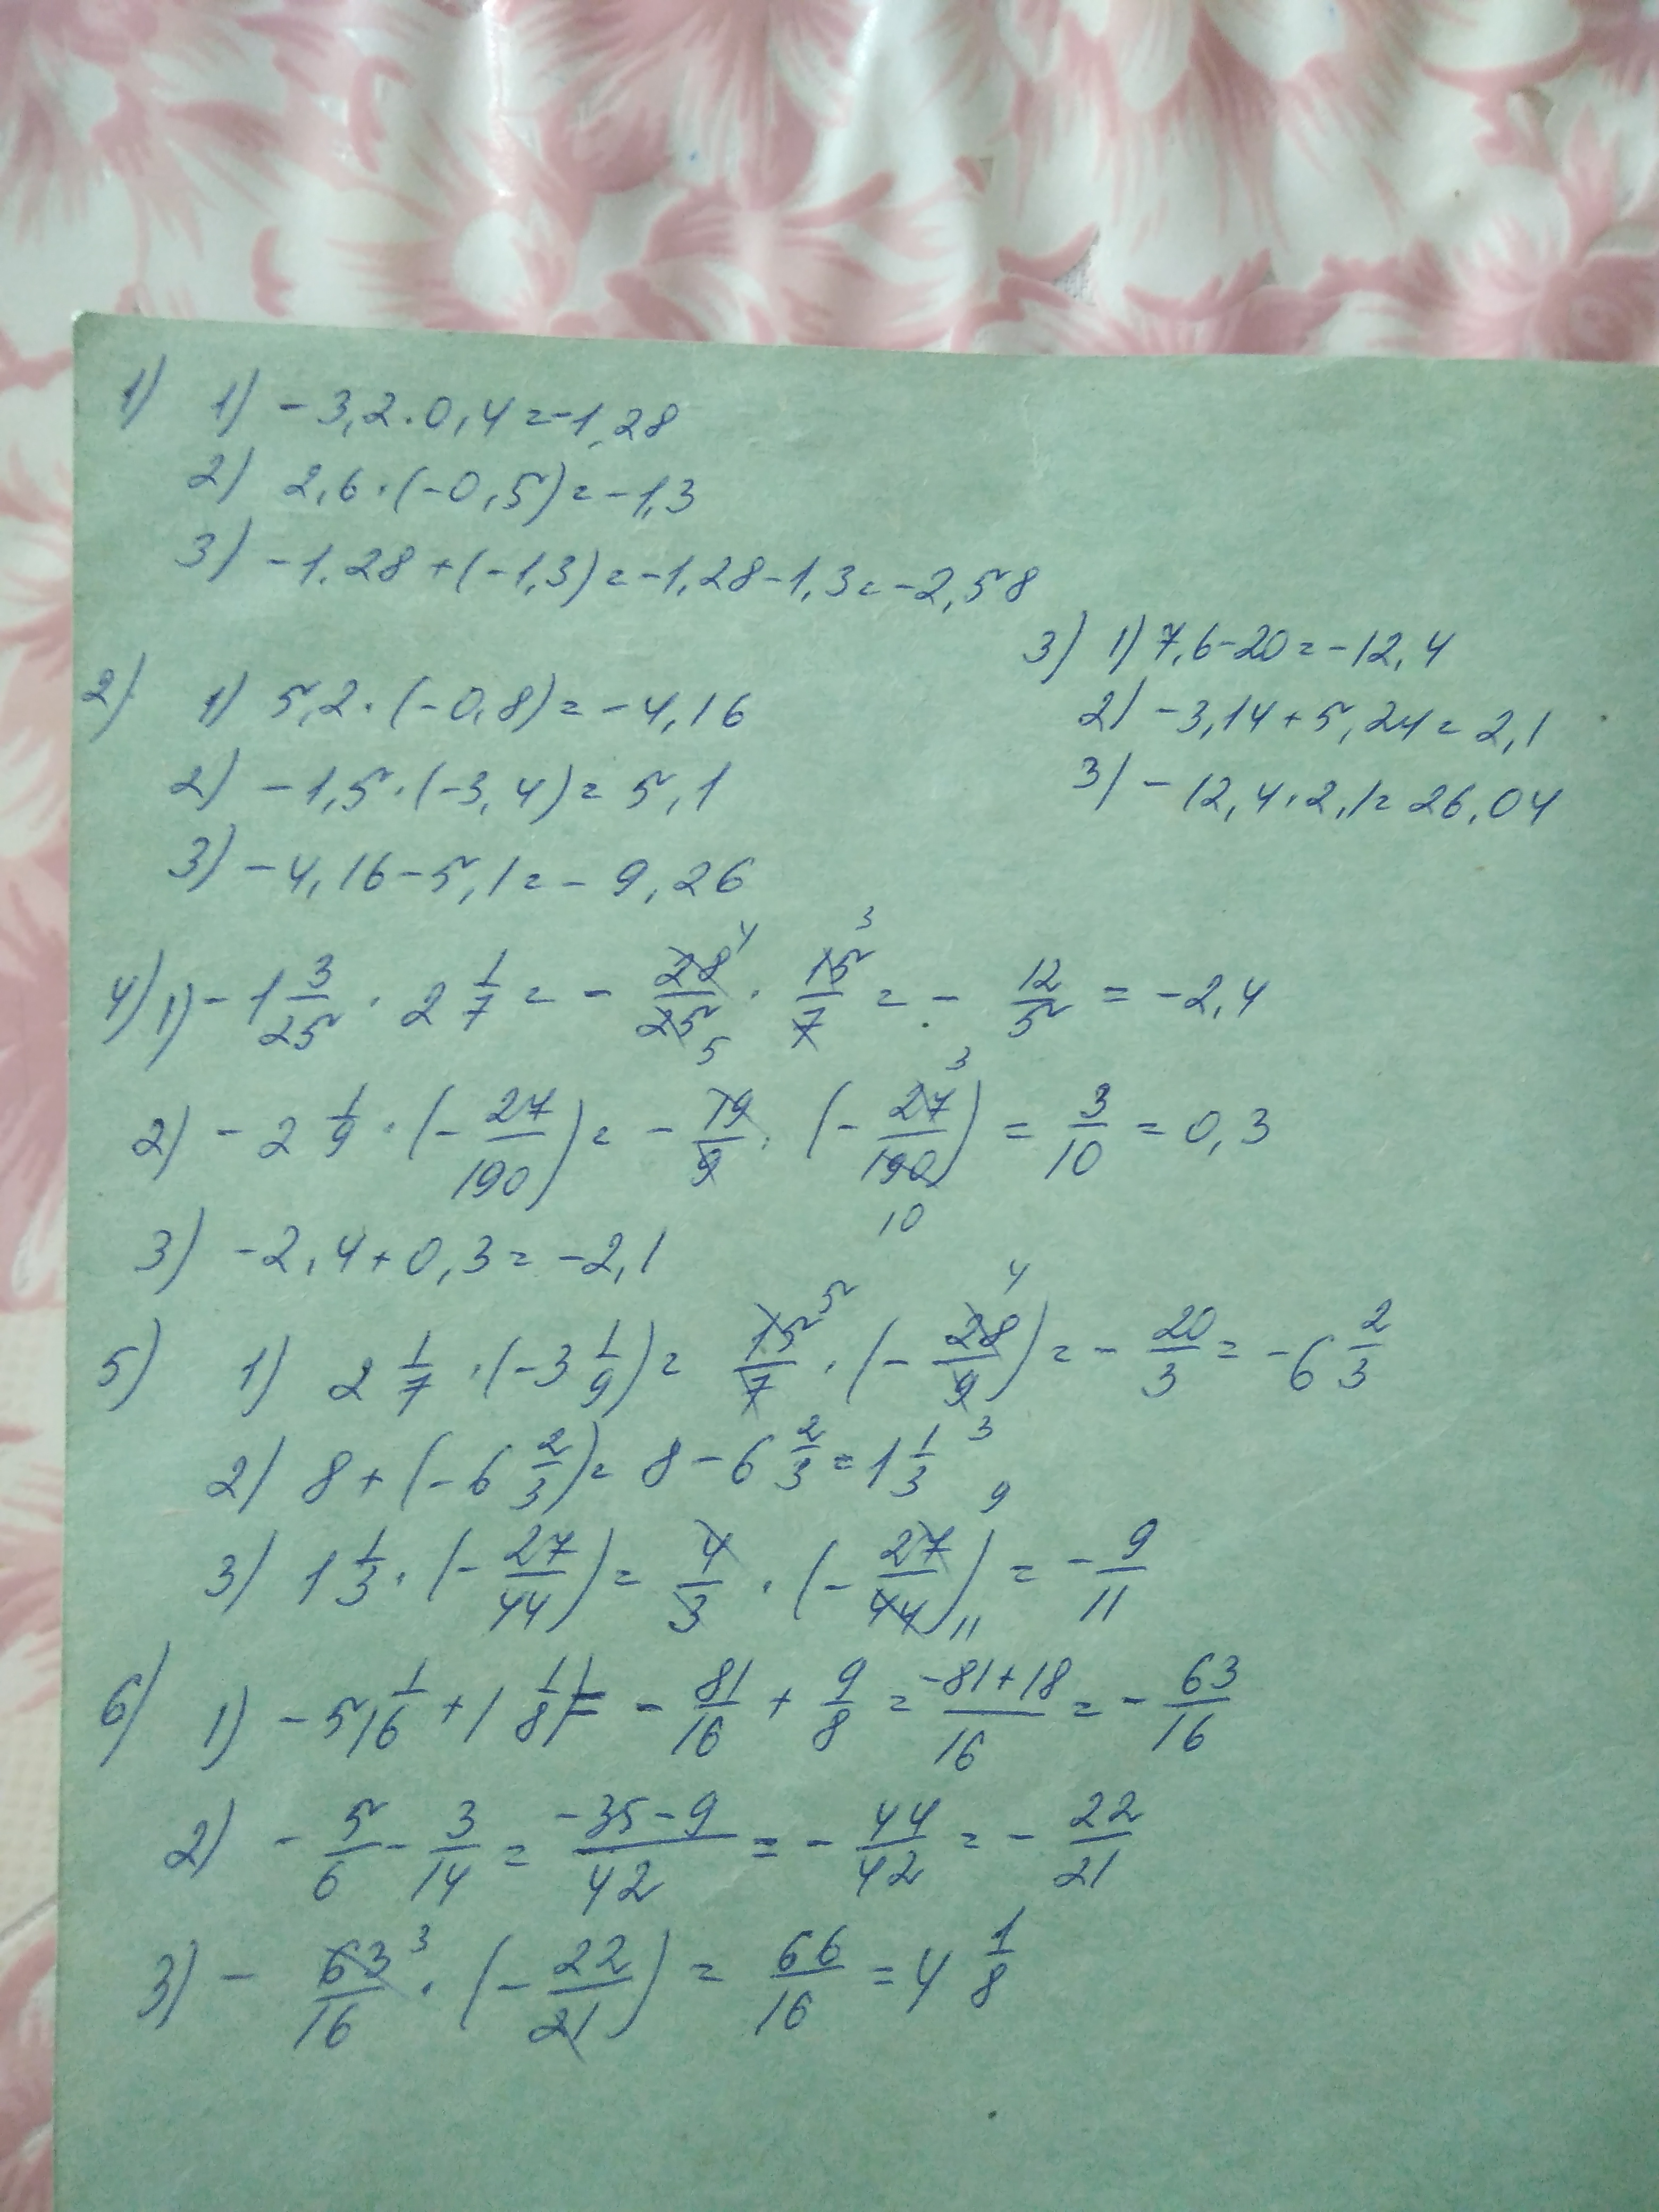 1) 1) -3,2·0,4=-1,28
2) 2,6·(-0,5)=-1,3
3) -1,28+(-1,3)=-1,28-1,3=-2,58
2) 1) 5,2·(-0,8)=-4,16
2) -1,5·(-3,4)=5,1
3) -4,16-5,1=-9,26
3) 1) 7,6-20=-12,4
2) -3,14+5,24=2,1
3) -12,4·2,1=26,04
4) 1) -1 3/25 · 2 1/7 = - 28/25 · 15/7 = - 12/5 = -2,4
2) -2 1/9 · (- 27/190) = - 19/9 · (- 27/190) = 3/10 = 0,3
3) -2,4+0,3=-2,1
5) 1) 2 1/7 · (-3 1/9) = 15/7 · (- 28/9) = - 20/3 = -6 2/3
2) 8+(-6 2/3) = 8-6 2/3 = 1 1/3
3) 1 1/3 · (- 27/44) = 4/3 · (- 27/44) = - 9/11
6) 1) -5 1/16 + 1 1/8 = - 81/16 + 9/8 = -81+18/16 = - 63/16
2) - 5/6 - 3/14 = -35-9/42 = - 44/42 = - 22/21
3) - 63/16 · (- 22/21) = 66/16 = 4 1/8